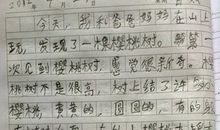 今天，我和爸爸妈妈在山上
玩，发现了一棵樱桃树。我第一
次见到樱桃树，感觉很新奇。樱
桃树不是很高，树上结了许多
樱桃，黄黄的，圆圆的，有的